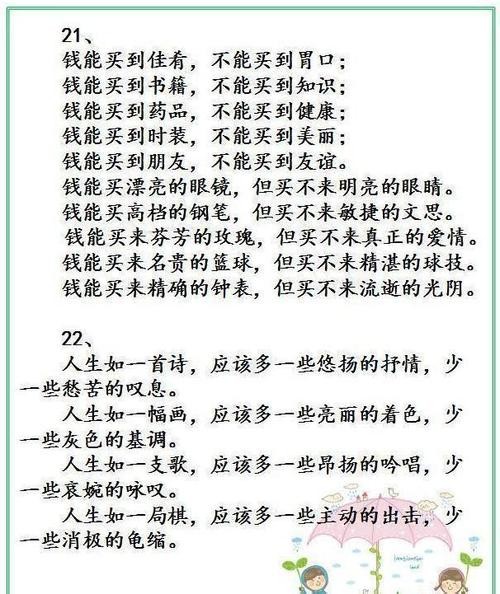 21、
钱能买到佳肴，不能买到胃口；
钱能买到书籍，不能买到知识；
钱能买到药品，不能买到健康；
钱能买到时装，不能买到美丽；
钱能买到朋友，不能买到友谊。
钱能买漂亮的眼镜，但买不来明亮的眼睛。
钱能买高档的钢笔，但买不来敏捷的文思。
钱能买来芬芳的玫瑰，但买不来真正的爱情。
钱能买来名贵的篮球，但买不来精湛的球技。
钱能买来精确的钟表，但买不来流逝的光阴。
22、
人生如一首诗，应该多一些悠扬的抒情，少
一些愁苦的叹息。
人生如一幅画，应该多一些亮丽的着色，少
一些灰色的基调。
人生如一支歌，应该多一些昂扬的吟唱，少
一些哀婉的咏叹。
人生如一局棋，应该多一些主动的出击，少
一些消极的龟缩。